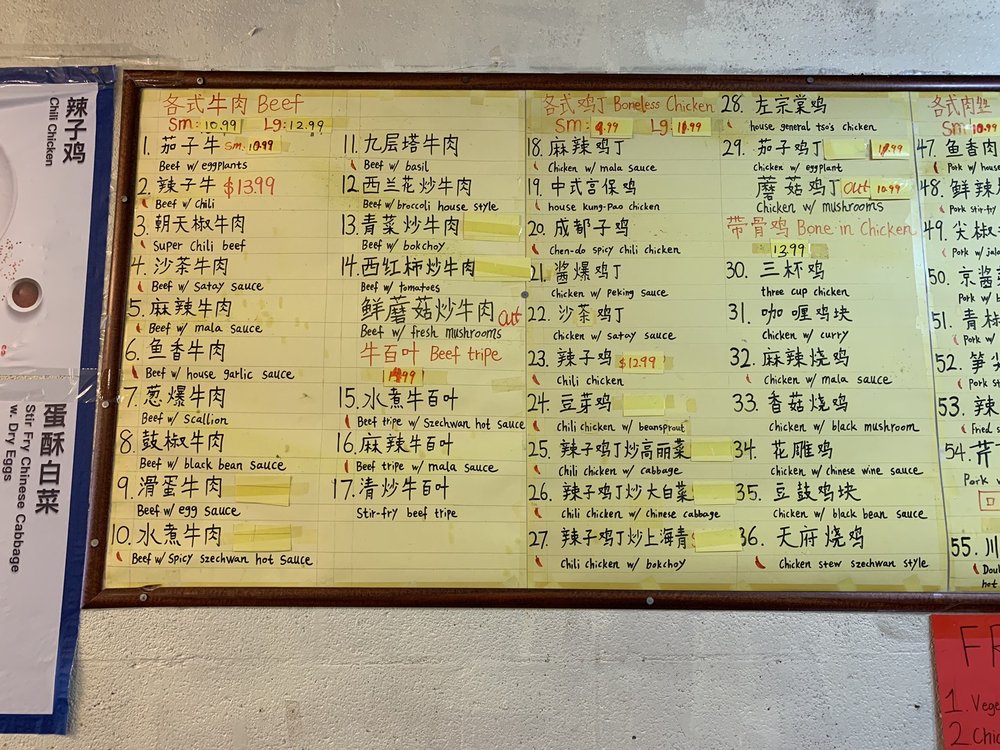 辣子鸡
Chili Chicken
蛋酥白菜
Stir Fry Chinese Cabbage
w. Dry Eggs
各式牛肉 Beef
Sm: 10.99 Lg: 12.99
1. 茄子牛 Sm. 10.99
Beef w/ eggplants
2. 辣子牛 $13.99
Beef w/ chili
3. 朝天椒牛肉
Super Chili beef
4. 沙茶牛肉
Beef w/ Satay sauce
5. 麻辣牛肉
Beef w/ mala sauce
6. 鱼香牛肉
Beef w/ house garlic sauce
7. 葱爆牛肉
Beef w/ scallion
8. 鼓椒牛肉
Beef w/ black bean sauce
9. 滑蛋牛肉
Beef w/ egg sauce
10. 水煮牛肉
Beef w/ spicy szechwan hot sauce
11. 九层塔牛肉
Beef w/ basil
12 西兰花炒牛肉
Beef w/ broccoli house style
13. 青菜炒牛肉
Beef w/ bokchoy
14. 西红柿炒牛肉
Beef w/ tomatoes
鲜蘑菇炒牛肉 Out
Beef w/ fresh mushrooms
牛百叶 Beef tripe
15. 水煮牛百叶
Beef tripe w/ Szechwan hot sauce
16. 麻辣牛百叶
Beef tripe w/ mala sauce
17. 清炒牛百叶
Stir-fry beef tripe
各式鸡丁 Boneless Chicken
Sm: 9.99 Lg: 11.99
18. 麻辣鸡丁
Chicken w/ mala sauce
19. 中式宫保鸡
house Kung-Pao chicken
20. 成都子鸡
Chen-do spicy chili chicken
21. 酱爆鸡丁
Chicken w/ peking sauce
22. 沙茶鸡丁
chicken w/ satay sauce
23. 辣子鸡 $12.99
Chili chicken
24. 豆芽鸡
Chili chicken w/ beansprout
25. 辣子鸡丁炒高丽菜
Chili chicken w/ cabbage
26. 辣子鸡丁炒大白菜
Chili chicken w/ chinese cabbage
27. 辣子鸡丁炒上海青
Chili chicken w/ bokchoy
28. 左宗棠鸡
house general tso's chicken
29. 茄子鸡丁
chicken w/ eggplant
蘑菇鸡丁 Out 10.99
Chicken w/ mushrooms
带骨鸡 Bone in Chicken
13.99
30. 三杯鸡
three cup chicken
31. 咖喱鸡块
Chicken w/ curry
32. 麻辣烧鸡
Chicken w/ mala sauce
33. 香菇烧鸡
chicken w/ black mushroom
34. 花雕鸡
chicken w/ chinese wine sauce
35. 豆鼓鸡块
Chicken w/ black bean sauce
36. 天府烧鸡
Chicken stew szechwan style
各式肉丝
Sm 10.99
47. 鱼香肉
Pork w/ house
48. 鲜辣
Pork stir-fry
49. 尖椒
Pork w/
50. 京酱
Pork w/
51. 青椒
Pork w/
52. 笋
Pork
53. 辣
Fried
54. 芹
Pork w/
55. 川
Dou
hot
1. Vege
2. Chi